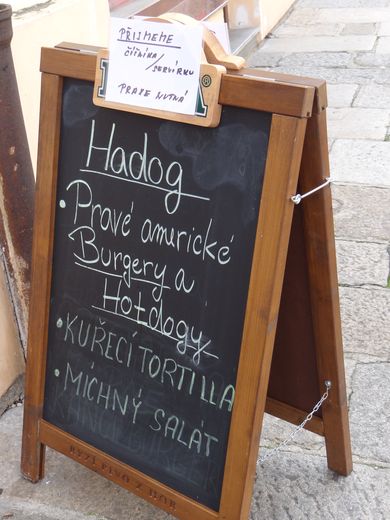 PŘIJMEME
ČÍŠNÍKA/
SERVÍRKU
PRAXE NUTNÁ
®
Hadog
• Pravé amurické
Burgery a
Hotdogy
• KUŘECÍ TORTILLA
• MÍCHNÝ SALÁT
RYZÍ PIVO Z HOR